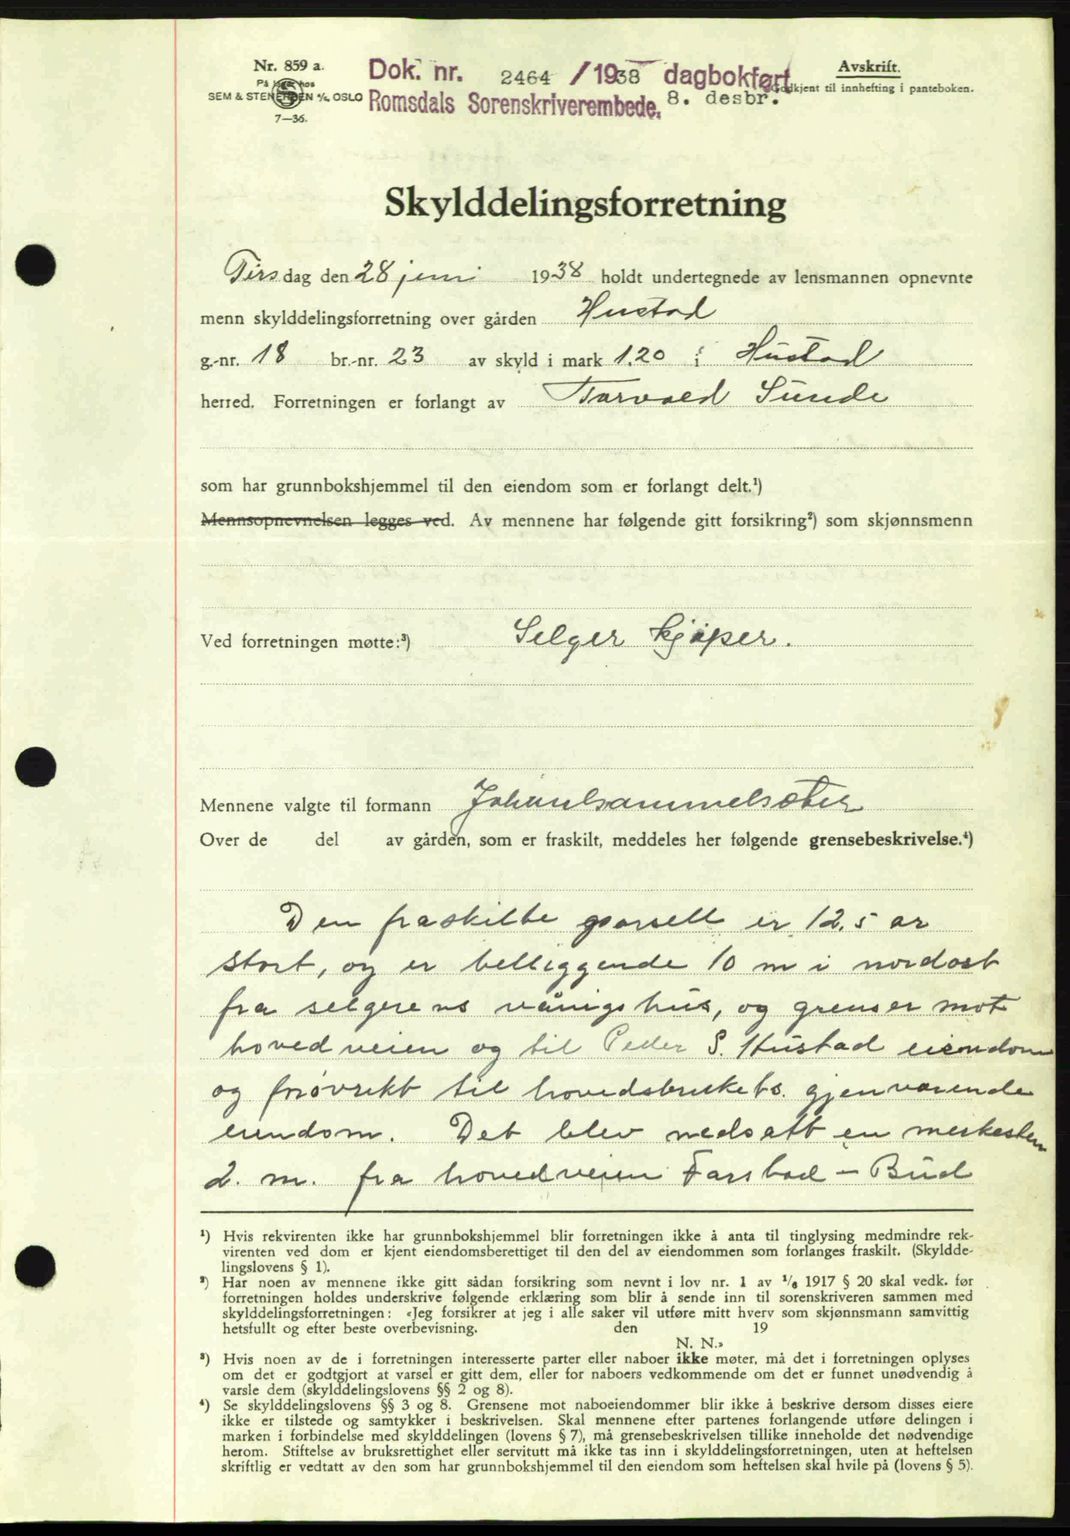 Nr. 859 a.
På lager hos
SEM & STENERSEN A/S, OSLO
7—36.
Dok. nr. 2464 /1938 dagbokført
8. desbr.
Romsdals Sorenskriverembede.
Avskrift.
Godkjent til innhefting i panteboken.
Skylddelingsforretning
Tirsdag den 28 juni 1938 holdt undertegnede av lensmannen opnevnte
menn skylddelingsforretning over gården Hustad
g.-nr. 18 br.-nr. 23 av skyld i mark 1.20 i Hustad
herred. Forretningen er forlangt av Torvald Sunde
som har grunnbokshjemmel til den eiendom som er forlangt delt.¹)
Mennsopnevnelsen legges ved. Av mennene har følgende gitt forsikring²) som skjønnsmenn
Ved forretningen møtte:³) Selger kjøper.
Mennene valgte til formann
Over de del av gården, som er fraskilt, meddeles her følgende grensebeskrivelse.⁴)
Den fraskilte parsell er 12,5 ar
stort, og er beliggende 10 m i nordost
fra selgerens våningshus, og grenser mot
hovedveien og til Peder S. Hustad eiendom
og forøvrikt til hovedsbrukets gjenværende
eiendom. Det blev nedsatt en merkesten
2. m. fra hovedveien Farstad – Bud
¹) Hvis rekvirenten ikke har grunnbokshjemmel blir forretningen ikke å anta til tinglysing medmindre rek-
virenten ved dom er kjent eiendomsberettiget til den del av eiendommen som forlanges fraskilt. (Skyldde-
lingslovens § 1).
²) Har noen av mennene ikke gitt sådan forsikring som nevnt i lov nr. 1 av 1/6 1917 § 20 skal vedk. før
forretningen holdes underskrive følgende erklæring som blir å sende inn til sorenskriveren sammen med
skylddelingsforretningen: «Jeg forsikrer at jeg i alle saker vil utføre mitt hverv som skjønnsmann samvittig
hetsfullt og efter beste overbevisning. den 19
N. N.»
³) Hvis noen av de i forretningen interesserte parter eller naboer ikke møter, må det i forretningen oplyses
om det er godtgjort at varsel er gitt dem, eller for naboers vedkommende om det er funnet unødvendig å
varsle dem (skylddelingslovens §§ 2 og 8).
⁴) Se skylddelingslovens §§ 3 og 8. Grensene mot naboeiendommer blir ikke å beskrive dersom disses eiere
ikke er tilstede og samtykker i beskrivelsen. Skal mennene efter partenes forlangende utføre delingen i
marken i forbindelse med skylddelingen (lovens § 7), må grensebeskrivelsen tillike inneholde det nødvendige
herom. Stiftelse av bruksrettighet eller servitutt må ikke tas inn i skylddelingsforretningen, uten at heftelsen
skriftlig er vedtatt av den som har grunnbokshjemmel til den eiendom som heftelsen skal hvile på (lovens § 5).